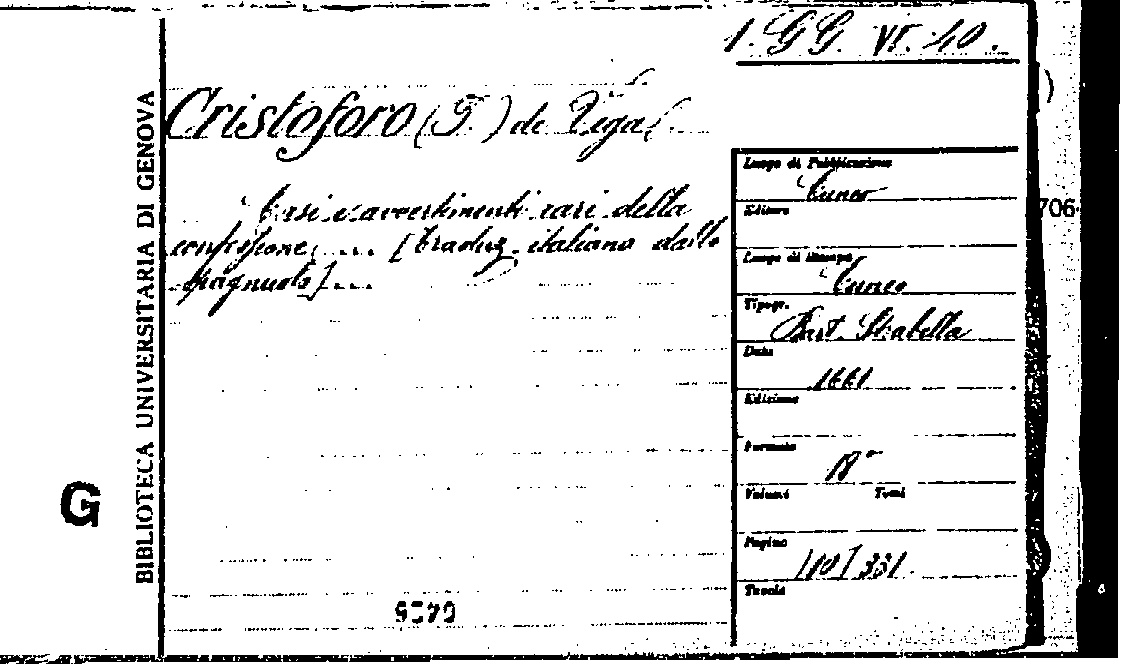 1. GG. VI. 40.
Cristoforo (F.) de Vega.
Casi e avvertimenti rari della
confessione, ... [traduz. italiana dallo
spagnuolo] ...
BIBLIOTECA UNIVERSITARIA DI GENOVA
G
Luogo di Pubblicazione
Cuneo
Editore
Luogo di stampa
Cuneo
Tipogr.
Bart. Strabella
Data
1661
Edizione
Formato
18°
Volumi Tomi
Pagine
/10/ 331.
Tavole
706